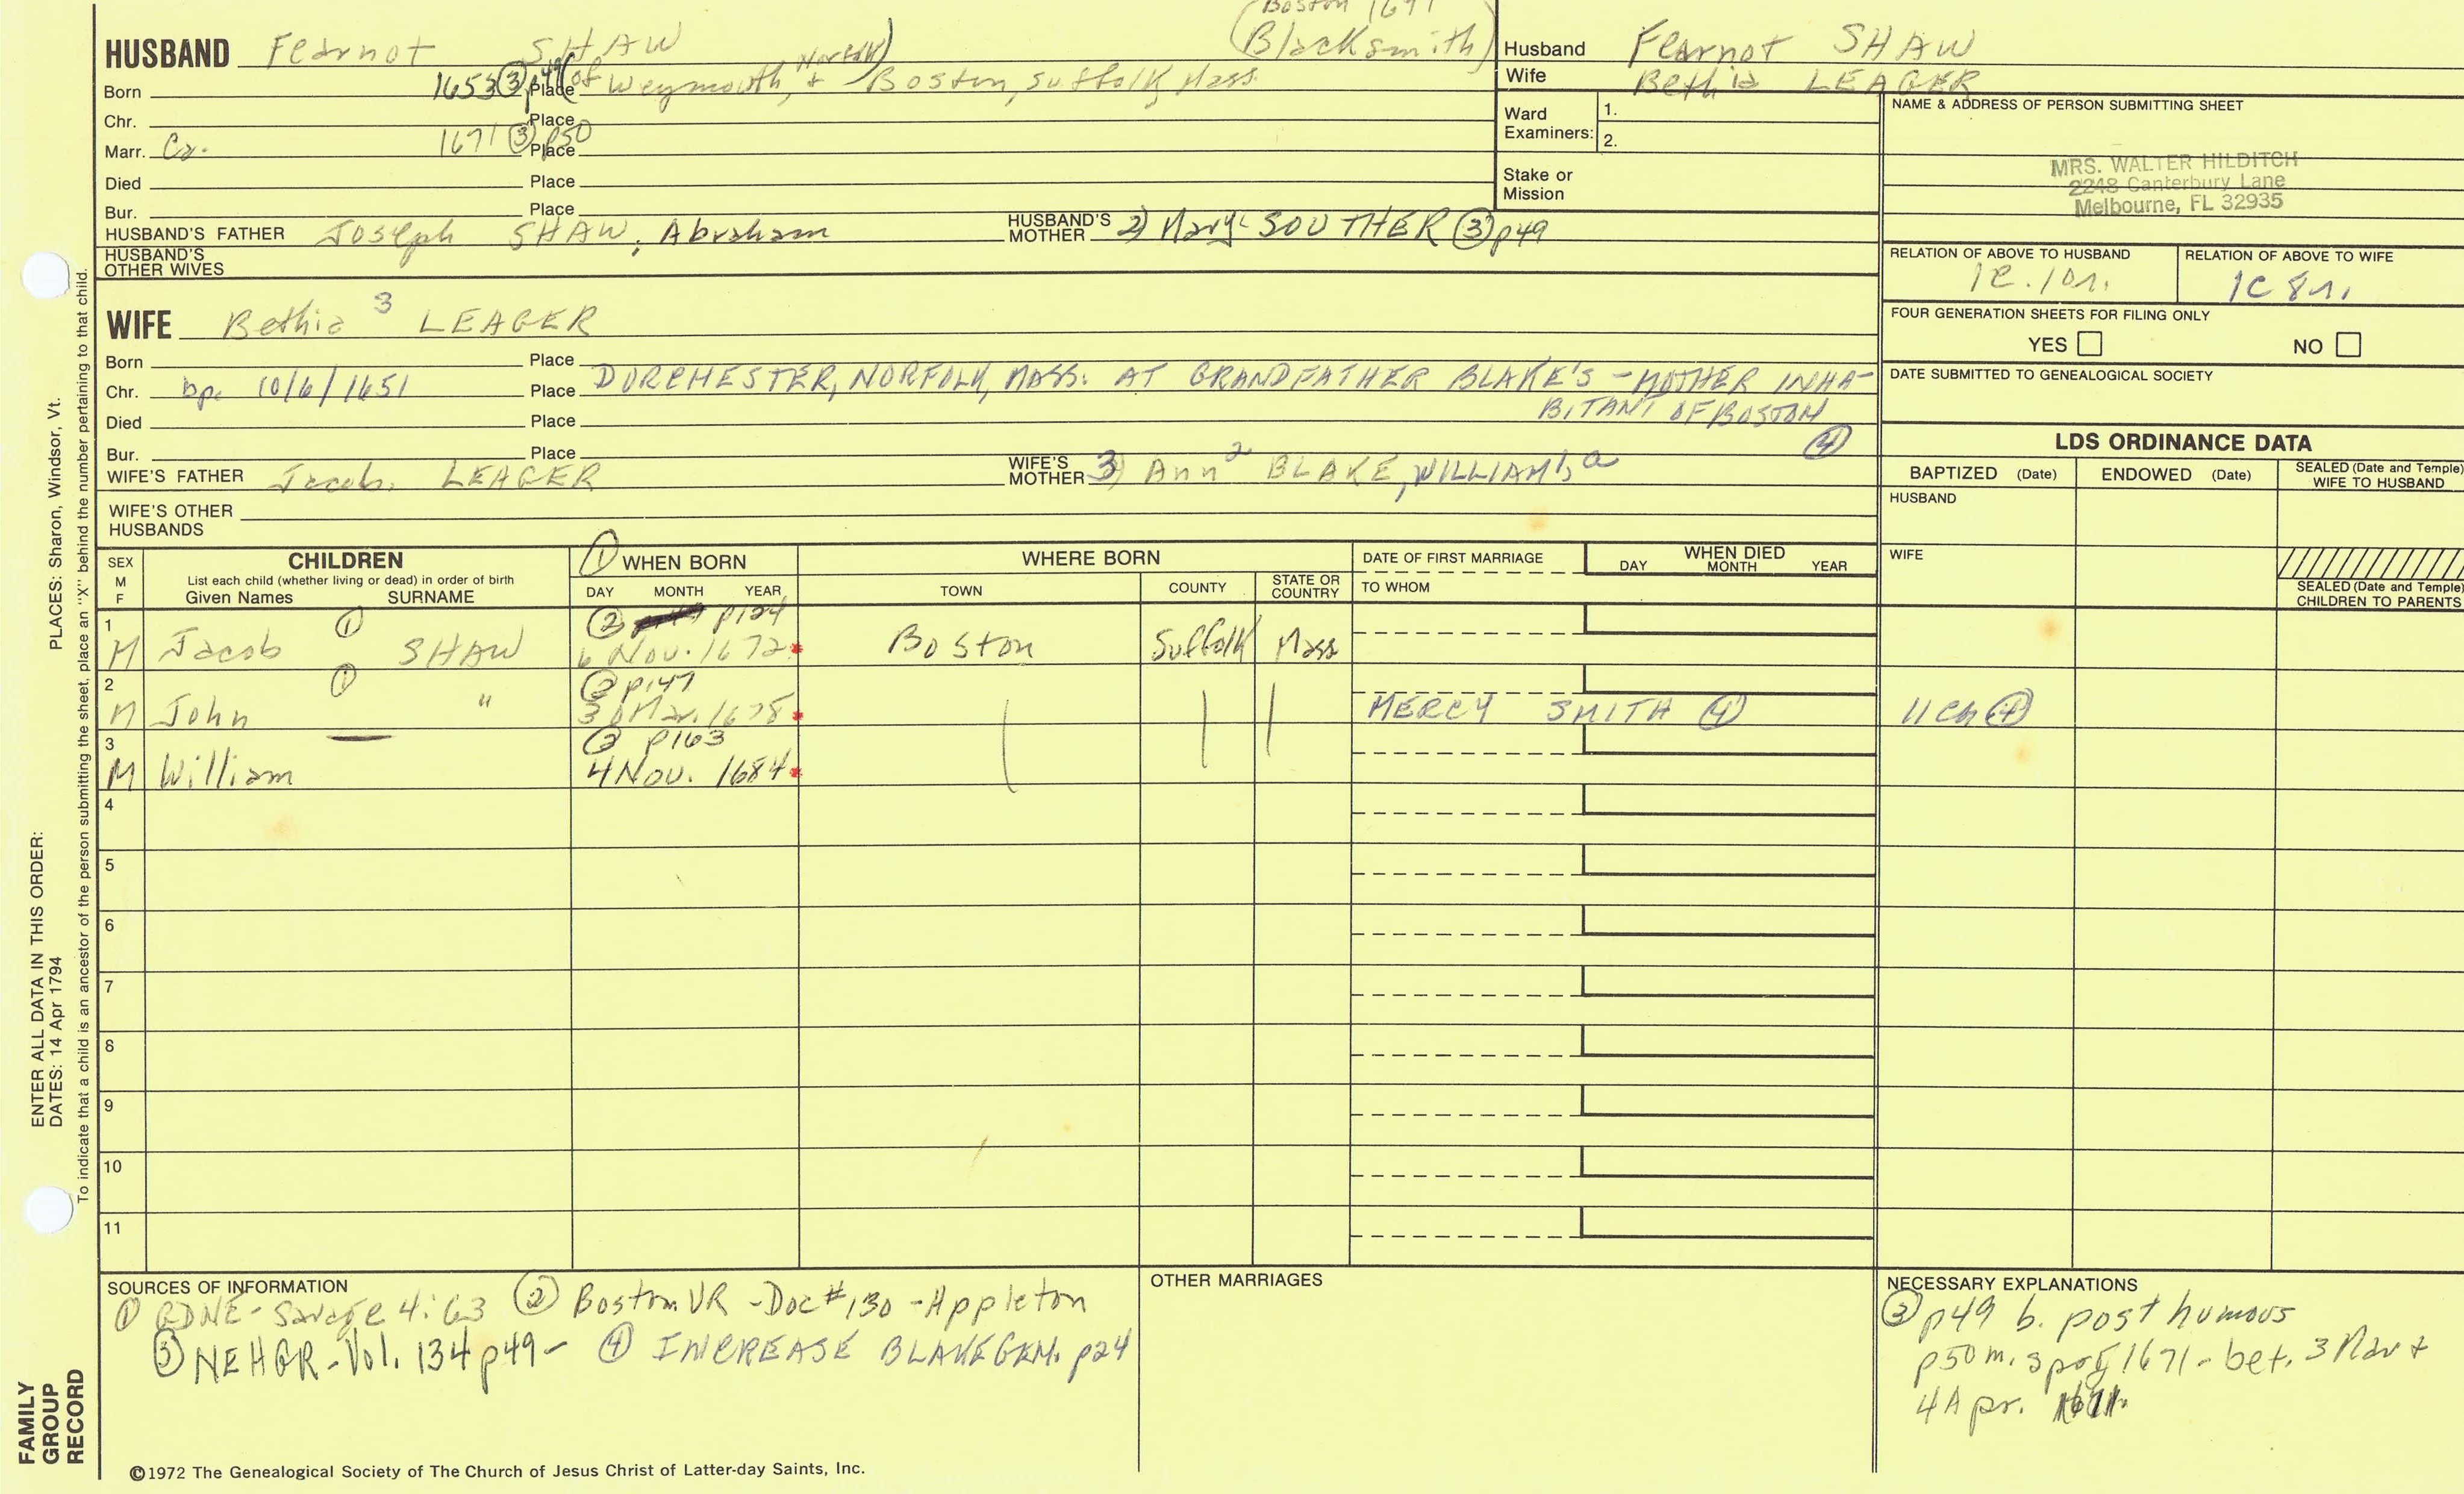 Boston 1671
(Blacksmith)
HUSBAND Fearnot SHAW
Born 1653 ③ p49 Place (of Weymouth, Norfolk) + Boston, Suffolk, Mass
Chr. Place
Marr. Ca. 1671 ③ p50 Place
Died Place
Bur. Place
HUSBAND'S FATHER Joseph SHAW, Abraham HUSBAND'S MOTHER 2) Mary SOUTHER ③ p49
HUSBAND'S OTHER WIVES
Husband Fearnot SHAW
Wife Bethia LEAGER
Ward Examiners: 1.
2.
Stake or Mission
NAME & ADDRESS OF PERSON SUBMITTING SHEET
MRS. WALTER HILDITCH
2248 Canterbury Lane
Melbourne, FL 32935
RELATION OF ABOVE TO HUSBAND RELATION OF ABOVE TO WIFE
1C.10r. 1C 8r.
FOUR GENERATION SHEETS FOR FILING ONLY
YES NO
DATE SUBMITTED TO GENEALOGICAL SOCIETY
WIFE Bethia 3 LEAGER
Born Place
Chr. bp. 10/6/1651 Place DORCHESTER, NORFOLK, MASS. AT GRANDFATHER BLAKE'S - MOTHER INHA-
BITANT OF BOSTON
Died Place
④
Bur. Place
WIFE'S FATHER Jacob LEAGER WIFE'S MOTHER 3) Ann 2 BLAKE, WILLIAM 1, a
WIFE'S OTHER HUSBANDS
LDS ORDINANCE DATA
BAPTIZED (Date) ENDOWED (Date) SEALED (Date and Temple) WIFE TO HUSBAND
HUSBAND
WIFE
SEALED (Date and Temple) CHILDREN TO PARENTS
SEX M F
CHILDREN
List each child (whether living or dead) in order of birth
Given Names SURNAME
① WHEN BORN
DAY MONTH YEAR
WHERE BORN
TOWN COUNTY STATE OR COUNTRY
DATE OF FIRST MARRIAGE
TO WHOM
WHEN DIED
DAY MONTH YEAR
1 ① ② p124
M Jacob SHAW 6 Nov. 1672 Boston Suffolk Mass
2 ① ② p147
M John " 30 Mar. 1678 MERCY SMITH ④ 11 Ch ④
3 ② p163
M William 4 Nov. 1684
4
5
6
7
8
9
10
11
SOURCES OF INFORMATION
① GDNE - Savage 4:63 ② Boston VR - Doc #130 - Appleton
③ NEHGR - Vol. 134 p49 - ④ INCREASE BLAKE GEN. p24
OTHER MARRIAGES
NECESSARY EXPLANATIONS
③ p49 b. posthumous
p50 m. 1671 - bet. 3 Mar +
4 Apr.
©1972 The Genealogical Society of The Church of Jesus Christ of Latter-day Saints, Inc.
ENTER ALL DATA IN THIS ORDER:
DATES: 14 Apr 1794 PLACES: Sharon, Windsor, Vt.
To indicate that a child is an ancestor of the person submitting the sheet, place an "X" behind the number pertaining to that child.
FAMILY
GROUP
RECORD